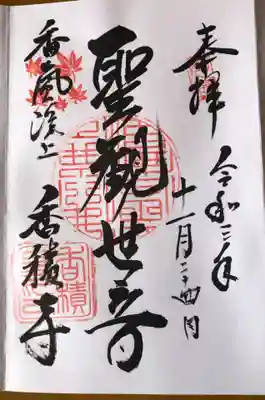 奉拝
令和三年
十一月二十四日
聖觀世音
香嵐渓上
香積寺